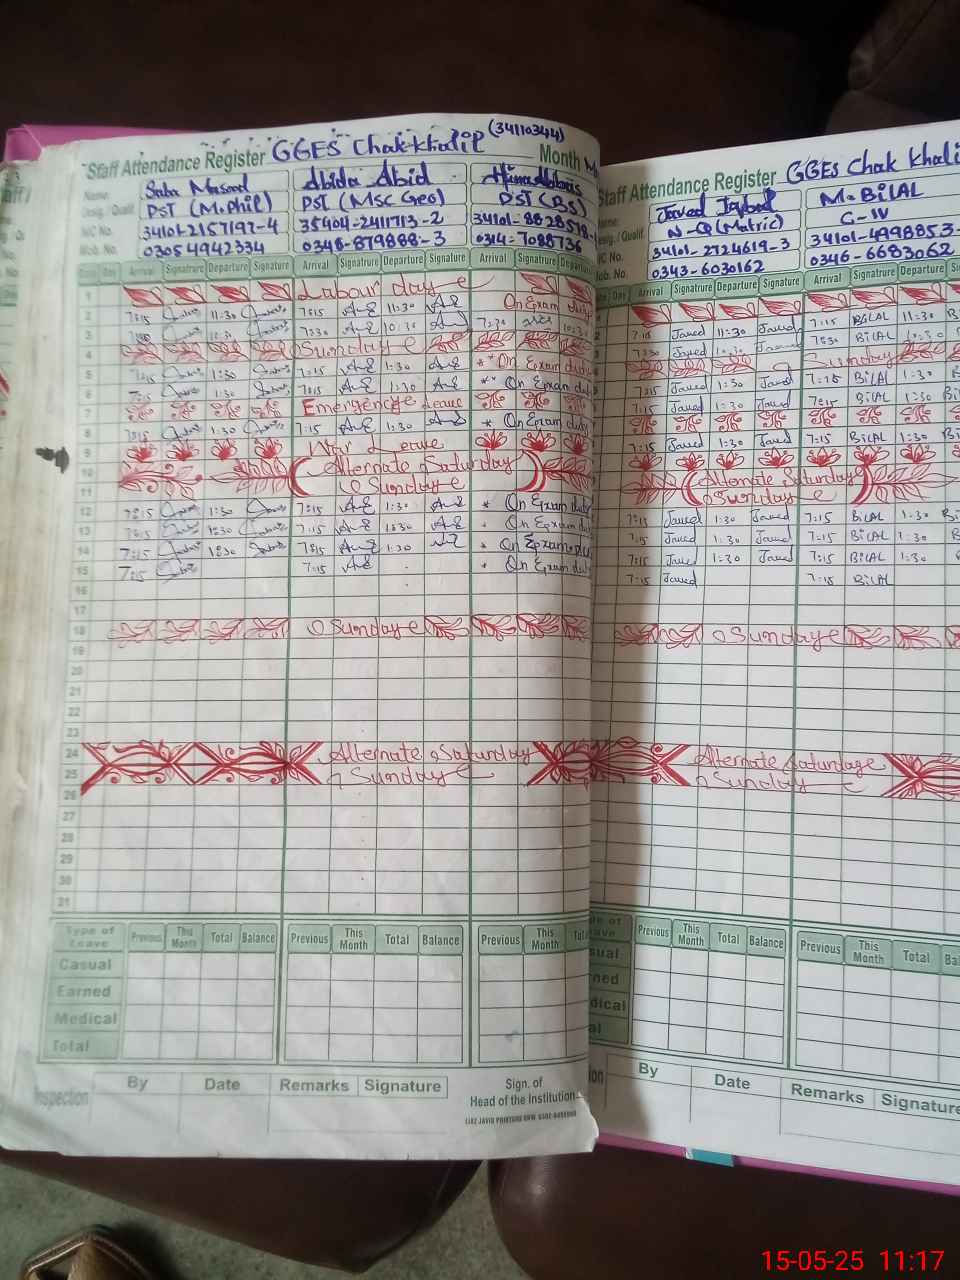 GGES Chak Khalil (34110344)
Staff Attendance Register Month M
Name: Saba Masood Abida Abid Hina Abbas
Desig. / Qualif. PST (M.Phil) PST (Msc Geo) PST (BS)
N/C No. 34101-2157197-4 35404-2411713-2 34101-8828578-
Mob. No. 03054942334 0348-879888-3 0314-7088736
Date Day Arrival Signature Departure Signature Arrival Signature Departure Signature Arrival Signature Departure
1 Labour day
2 7:15 11:30 7:15 11:30 On Exam duty
3 10:30 7:30 10:30 7:30 10:30
4 Sunday
5 7:15 1:30 7:15 1:30 On Exam duty
6 7:15 1:30 7:15 1:30 On Exam duty
7 Emergency Leave
8 7:15 1:30 7:15 1:30 * On Exam duty
9 War Leave
10 Alternate Saturday
11 Sunday
12 7:15 1:30 7:15 1:30 * On Exam duty
13 7:15 1:30 7:15 1:30 On Exam duty
14 7:15 1:30 7:15 1:30 * On Exam
15 7:15 7:15 * On Exam duty
16
17
18 Sunday
19
20
21
22
23
24 Alternate Saturday
25 Sunday
26
27
28
29
30
31
Type of Leave Previous This Month Total Balance Previous This Month Total Balance Previous This Month Total
Casual
Earned
Medical
Total
Inspection By Date Remarks Signature Sign. of Head of the Institution
Staff Attendance Register GGES Chak Khali
Name: Javed Iqbal M. BILAL
Desig. / Qualif. N-Q (Matric) C-IV
N/C No. 34101-2724619-3 34101-4998853-
Mob. No. 0343-6030162 0346-6683062
Day Arrival Signature Departure Signature Arrival Signature Departure
7:15 Javed 11:30 Javed 7:15 BILAL 11:30
7:30 Javed 10:30 Javed 7:30 BILAL 10:30
Sunday
7:15 Javed 1:30 Javed 7:15 BILAL 1:30 Bi
7:15 Javed 1:30 Javed 7:15 BILAL 1:30 Bi
7:15 Javed 1:30 Javed 7:15 BILAL 1:30
Alternate Saturday
Sunday
7:15 Javed 1:30 Javed 7:15 BILAL 1:30
7:15 Javed 1:30 Javed 7:15 BILAL 1:30
7:15 Javed 1:30 Javed 7:15 BILAL 1:30
7:15 Javed 7:15 BILAL
Sunday
Alternate Saturday
Sunday
Previous This Month Total Balance Previous This Month Total Ba
By Date Remarks Signature
15-05-25 11:17